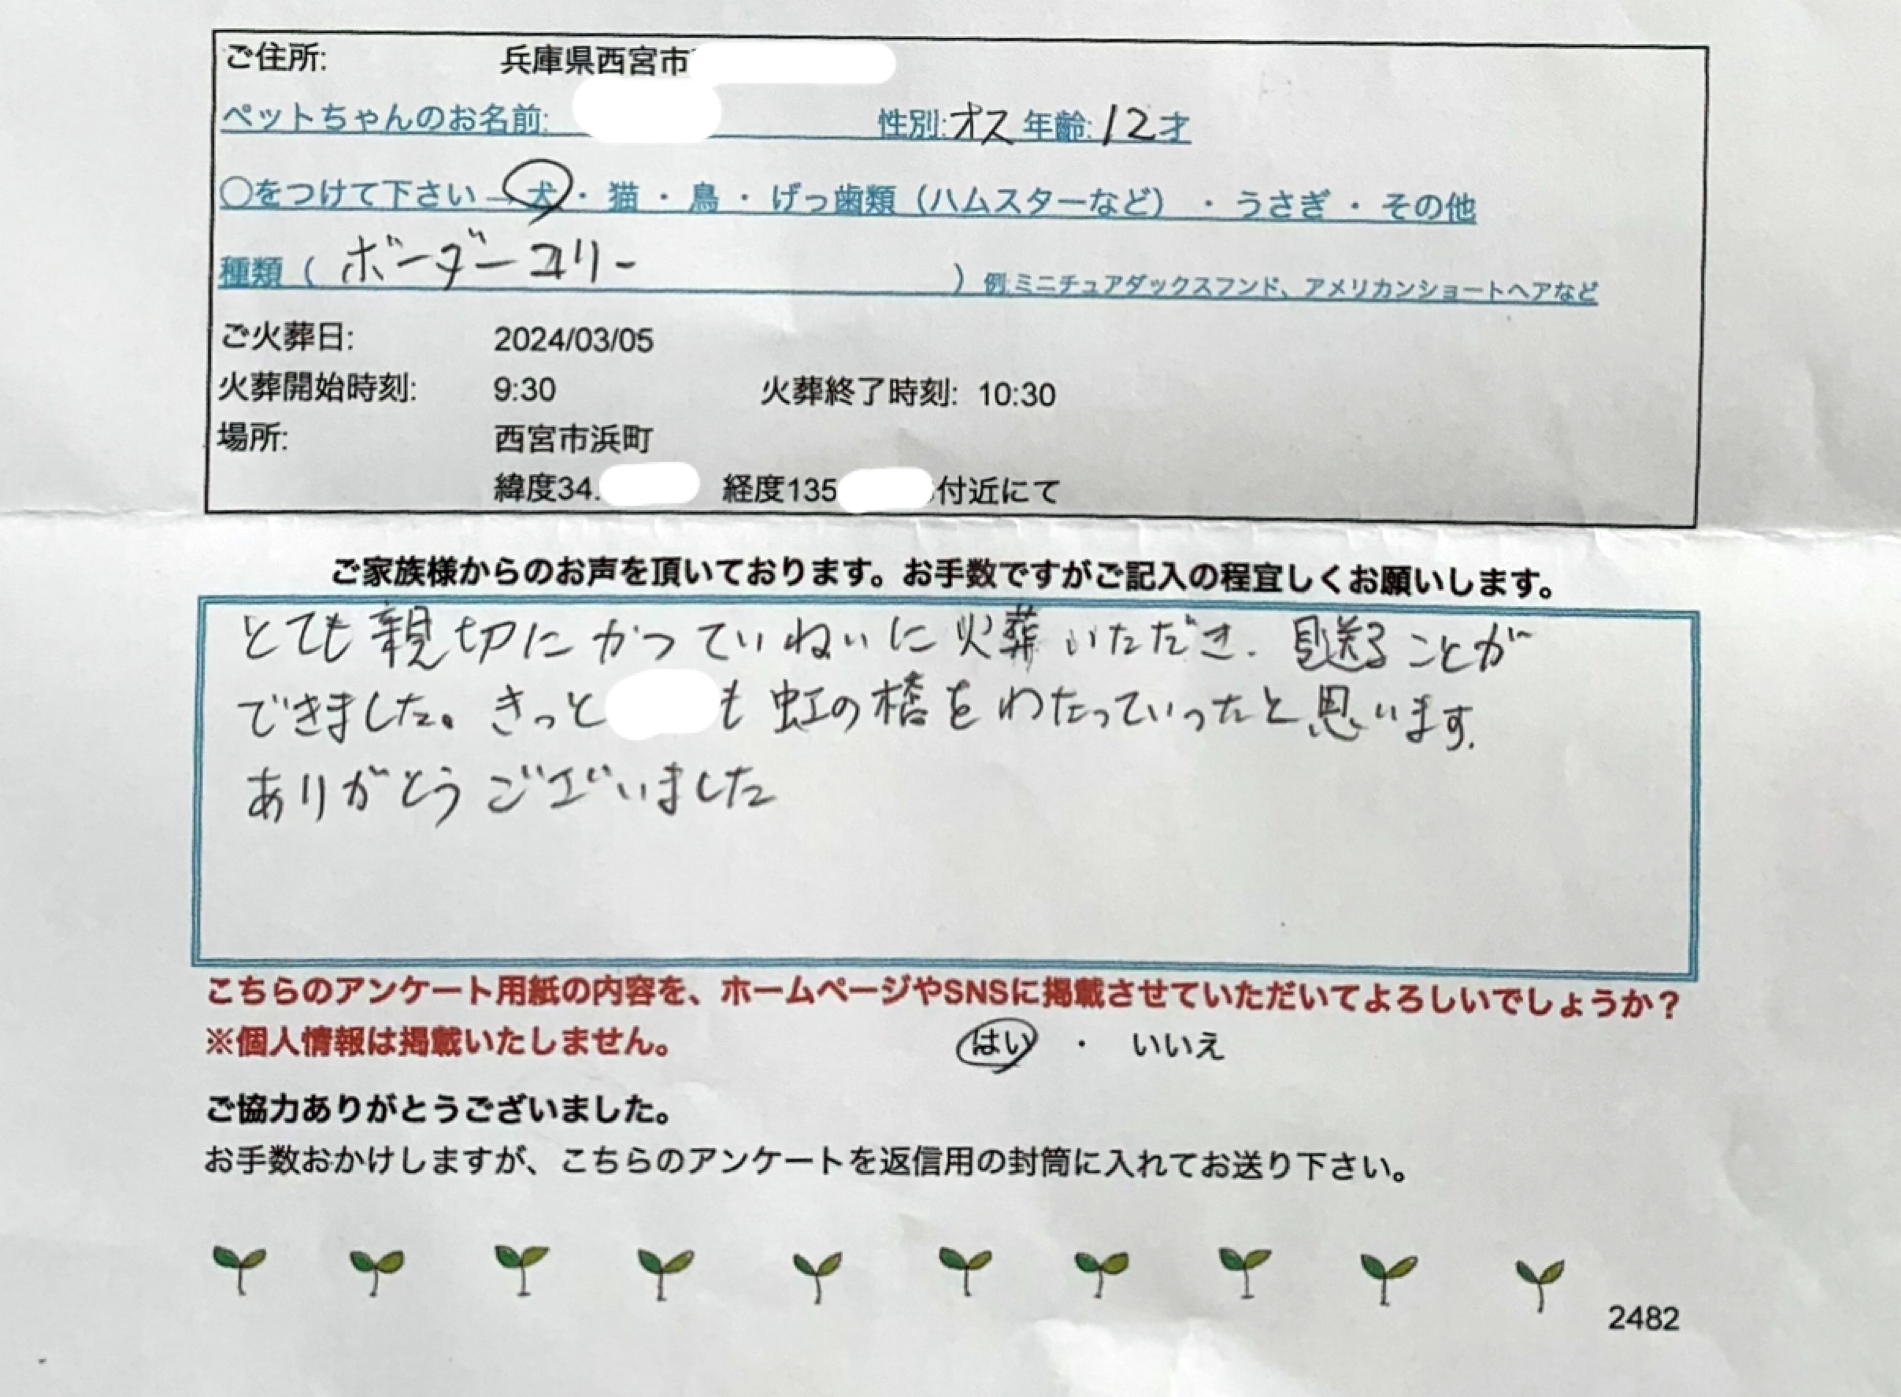 ご住所: 兵庫県西宮市
ペットちゃんのお名前: 性別:オス 年齢:12才
○をつけて下さい→犬・猫・鳥・げっ歯類（ハムスターなど）・うさぎ・その他
種類（ボーダーコリー）例:ミニチュアダックスフンド、アメリカンショートヘアなど
ご火葬日: 2024/03/05
火葬開始時刻: 9:30 火葬終了時刻: 10:30
場所: 西宮市浜町
緯度34. 経度135 付近にて
ご家族様からのお声を頂いております。お手数ですがご記入の程宜しくお願いします。
とても親切にかつていねいに火葬いただき、見送ることが
できました。きっと も虹の橋をわたっていったと思います。
ありがとうございました
こちらのアンケート用紙の内容を、ホームページやSNSに掲載させていただいてよろしいでしょうか？
※個人情報は掲載いたしません。 はい ・ いいえ
ご協力ありがとうございました。
お手数おかけしますが、こちらのアンケートを返信用の封筒に入れてお送り下さい。
2482